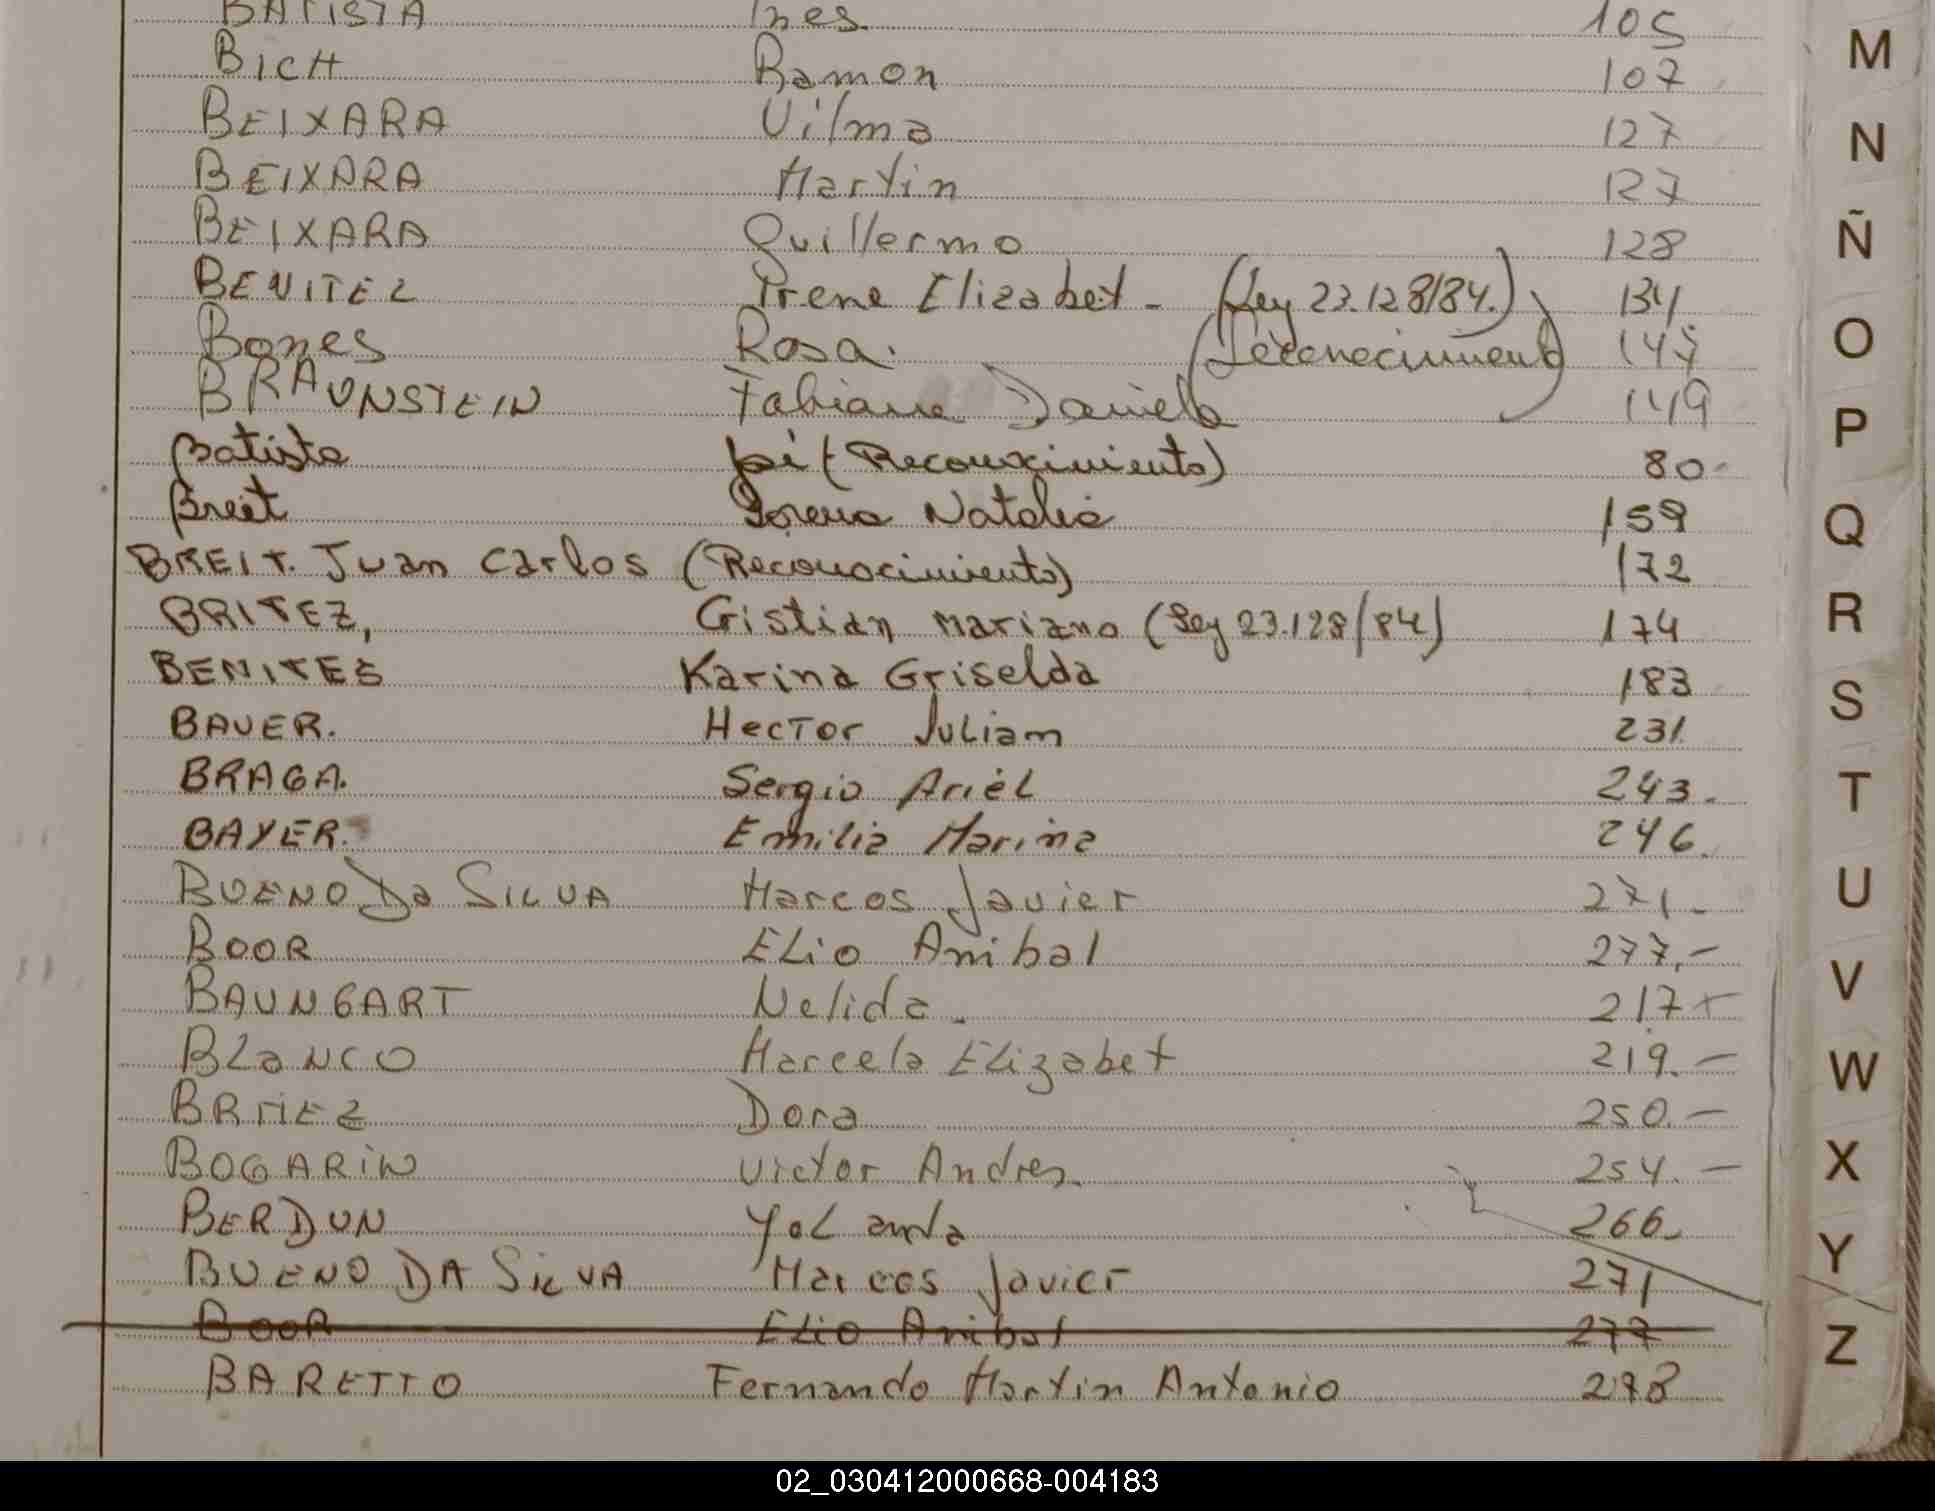 BATISTA Ines. 105
BICH Ramon 107
BEIXARA Vilma 127
BEIXARA Martin 127
BEIXARA Guillermo 128
BENITEZ Irene Elizabet - (Ley 23.128/84.) 134
Bones Rosa. (Reconocimiento) 147
BRAUNSTEIN Fabiana Daniela 149
Batista (Reconocimiento) 80
Breit Lorena Natalia 159
BREIT. Juan Carlos (Reconocimiento) 172
BRITEZ, Cristian Mariano (Ley 23.128/84) 174
BENITES Karina Griselda 183
BAUER. Hector Julian 231.
BRAGA. Sergio Ariel 243.
BAYER. Emilia Marina 246.
BUENO Da SILVA Marcos Javier 271.-
BOOR Elio Anibal 277.-
BAUNGART Nelida. 217-
BLANCO Marcela Elizabet 219.-
BRITEZ Dora 250.-
BOGARIN Victor Andres. 254.-
BERDUN Yolanda 266.
BUENO DA SILVA Marcos Javier 271
BOOR Elio Anibal 277
BARETTO Fernando Martin Antonio 278
M
N
Ñ
O
P
Q
R
S
T
U
V
W
X
Y
Z
02_030412000668-004183